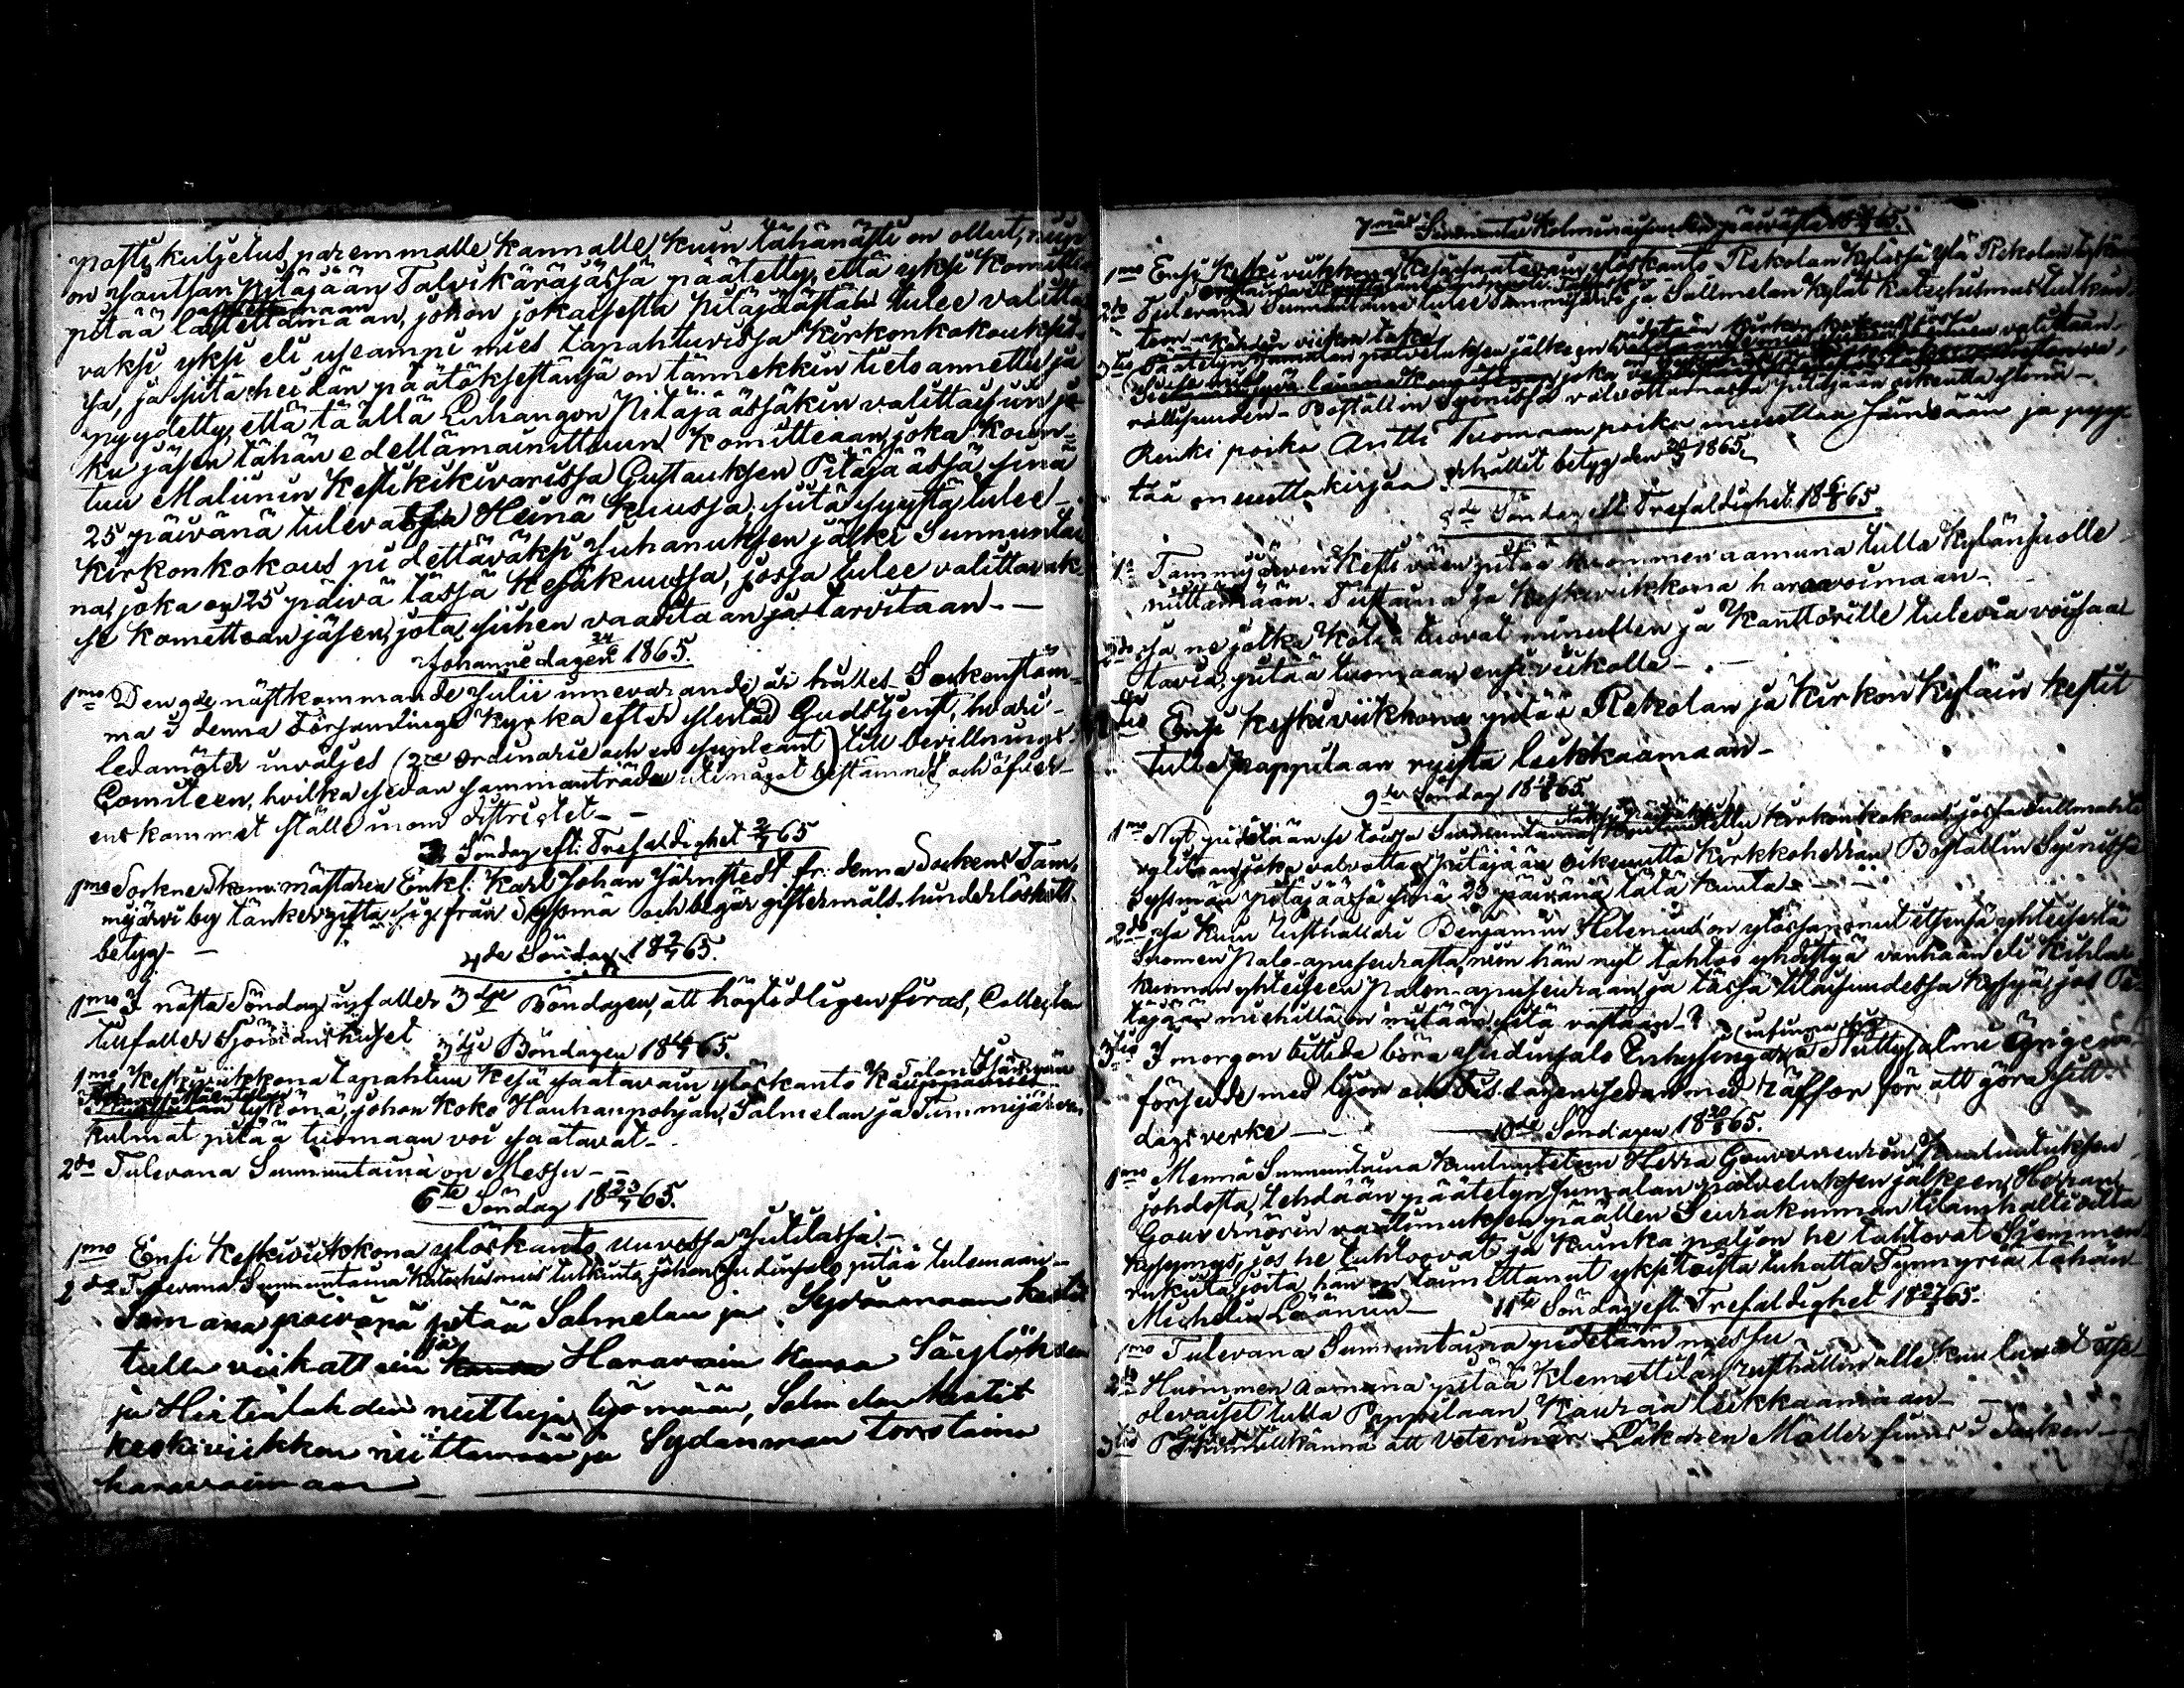 posti kuljetus paremmalle kannalle kuin tähänästi on ollut, niin
on Hauhan Pitäjään Talvikäräjässä päätetty, että yksi Komittea
pitää asetettamaan, johon jokaisesta Pitäjäästä tulee valitta
vaksi yksi eli useampi mies tapahtuvissa Kirkonkokouksis
sa, ja siitä heidän päätöksestänsä on tännekkin tieto annettu ja
pyydetty, että täällä Luhangon Pitäjäässäkin valittaisiin jo
ku jäsen tähän edellämainittuun Komitteaan, joka koon=
tuu Maliinin Kestikikivarissa Gustauksen Pitäjäässä sinä
25 päivänä tulevassa Heinä Kuussa; siitä syystä tulee
Kirkonkokous pidettäväksi Juhanuksen jälki Sunnuntai
na, joka on 25 päivä tässä Kesäkuussa, jossa tulee valittavak
se Komittean jäsen, jota siihen vaaditaan ja tarvitaan. —
Johannedagen 24/6 1865.
1mo Den 9de nästkommande Julii innevarande år hålles Sockenstäm=
ma i denna Församlings Kyrka efter slutad Gudstjenst, hvari
ledamöter inväljes (2ne ordinarie och en supleant) till bevillnings-
Comiteen, hvilka sedan sammanträda uti något bestämdt och öfver-
enskommet ställe inom districtet. —
3 Söndag eft: Trefaldighet 2/7 65
1mo Sockne Skomästaren Enkl: Karl Johan Järnstedt fr: denna Sockens Tam-
mijärvi by tänker gifta sig från Sysmä och begär giftermåls hinderlöshets
betyg. —
4de Söndag 18 9/7 65.
1mo I nästa Söndag infaller 3dje Böndagen, att högtidligen firas, Collecten
tillfaller Sjömanshuset
3dje Böndagen 18 16/7 65.
1mo Keskiviikkona tapahtuu Kesä saatavain ylöskanto Talon
tykönä, johon koko Hauhanpohjan, Salmelan ja Tammijärven
kulmat pitää tuomaan voi saatavat. —
2do Tulevana Sunnuntaina on Messu. —
6te Söndag 18 23/7 65.
1mo Ensi Keskiviikkona ylöskanto uuvessa Jutilassa. —
2do Tulevana Sunnuntaina Katechismus tutkinto, johon pitää tulemaan. —
Samana päivänä pitää Salmelan ja Sydänmaan kestit
tulla viikattein ja Haravain kansa Säylöhden
ja Hietalahden niittuja lyömään, Salmelan kestit
keskiviikkon niittamään ja Sydanman torstaina
haravaimaan
7mäs Sunnuntai Kolminaisuuden päivästä 18 30/7 65.
1mo Ensi Keskiviikkona Kesäsaatavain ylöskanto Rekolan Kylässä Ylä Rekolan tykönä
2do Tulevana Sunnuntaina tulee Tammijärvi ja Sallmelan Kylät Katechismus tutkin
toon kahden viikon takaa
3tio Päätetyn Jumalan palveluksen jälkeen pidetään Kirkon kokous jossa valittaan
joka
rällisuuden Boställin Syynissä valvottamassa pitäjään oikeutta
Renki poika Antti Tuomaan poika muuttaa Jämsään ja pyy-
tää muuttokirjaa erhållit betyg den 20/9 1865.
8de Söndag eft Trefaldighet 18 6/8 65.
1o Tammijärven Kesti väen pitää huomenaamuna tulla Kylänsuolle
niittämään. Tiistaina ja Keskiviikkona haravoimaan. —
2do Ja ne jotka Kotia tuovat minullen ja Kanttorille tulevia voisaa
tavia, pitää tuomaan ensi viikolla. —
3tio Ensi keskiviikkona pitää Rekolan ja Kirkon Kyläin kestit
tulla Pappilaan ruista leikkaamaan. —
9de Söndag 18 13/8 65.
1mo Nyt pidetään se toissa Sunnuntaina Kirkonkokous, jossa
joka valvottaa pitäjään oikeutta Kirkkoherran Boställin Syynissä
Sysmän pitäjäässä sinä 23 päivänä tätä kuuta. —
2do Ja Kuin Lusthallari Benjamin Helenius on ylössanonut itsensä yhteisestä
Suomen Palo-apuseurasta, niin hän nyt tahtoo yhdistyä vanhaan eli Kihla
kunnan yhteiseen Palon-apuseuraan, ja tässä tilaisuudessa kysyä, jos Pi
täjään miehillä on mitään sitä vastaan?
3tio I morgon bittida böra
försedde med lyor och Tisdagen sedan med räffsor för att göra sitt
dagsverke —
10de Söndagen 18 20/8 65.
1mo Mennä Sunnuntaina kuulutetun Herra Gouverneurin Kuulutuksen
johdosta, tehdään päätetyn Jumalan palveluksen jälkeen, Herran
Gouvernörin vaatimuksen päällen Seurakunnan tilanhaltioilta
kysymys, jos he tahtoovat ja Kuinka paljon he tahtovat Sjemmen
rukiita, joita hän on toimittanut yksitoista tuhatta Tynnyriä tähän
Michelin Läänin —
11te Söndag eft. Trefaldighet 18 27/8 65.
1mo Tulevana Sunnuntaina pidetään messu.
2do Huommen aamuna pitää Klemettilän rusthållin alle kuuluvat itse
olevaiset tulla Pappilaan Kauraa leikkaamaan —
3tio tillkänna att Veterinär Läkaren Möller finnes i Socken —